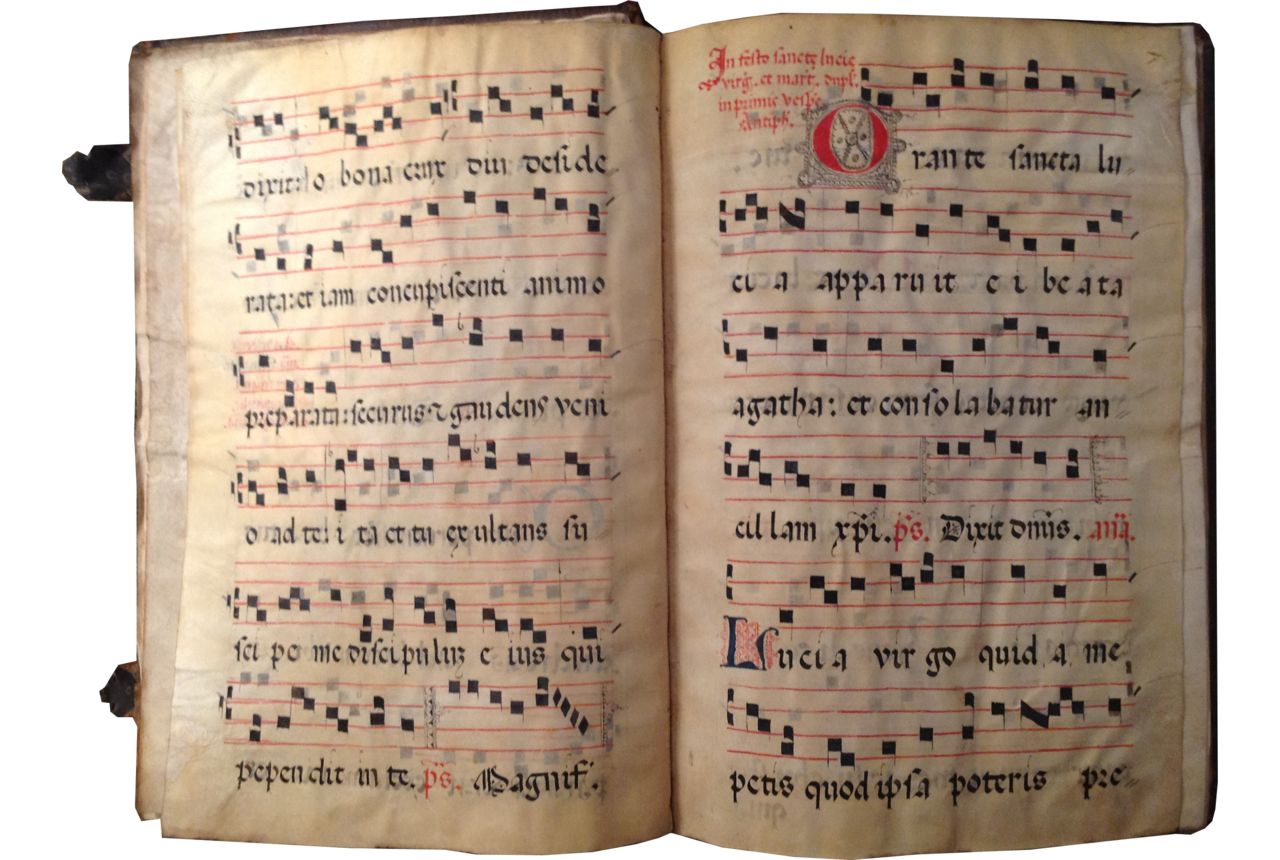 dixit: o bona crux diu deside
rata: et iam concupiscenti animo
preparata: securus ⁊ gaudens veni
o ad te: i ta et tu ex ultans su
sci pe me discipuluz e ius qui
pepen dit in te. ps. Magnif.
In festo sancte lucie
virg. et mart. dupl.
in primis vesp.
Antiph.
O ran te sancta lu
ci a appa ru it e i be a ta
agatha: et con so la batur an
cil lam xpi. ps. Dixit dnus. ana.
Lu ci a vir go quid a me
petis quod ip sa poteris pre